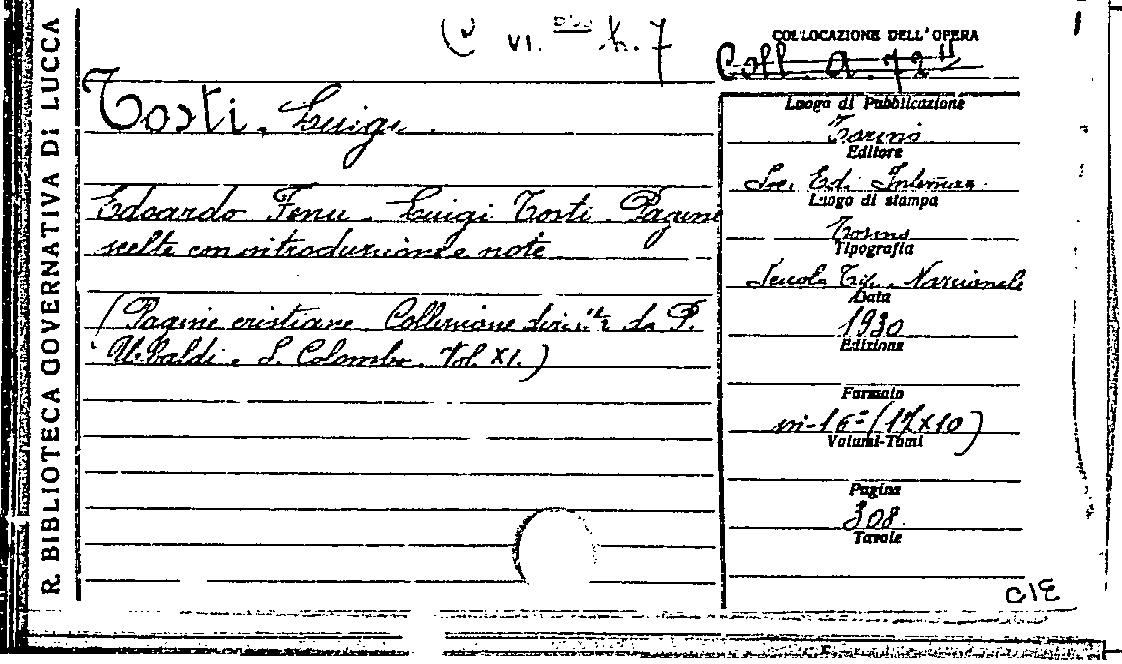 R. BIBLIOTECA GOVERNATIVA DI LUCCA
VI. h. 7
COLLOCAZIONE DELL'OPERA
Coll. A. 72
Tosti, Luigi.
Edoardo Fenu - Luigi Tosti - Pagine
scelte con introduzione e note
(Pagine cristiane. Collezione diretta da P.
Ubaldi e S. Colombo. Vol. XI.)
Luogo di Pubblicazione
Torino
Editore
Soc. Ed. Internaz.
Luogo di stampa
Torino
Tipografia
Scuola Tip. Nazionale
Data
1930
Edizione
Formato
in-16° (17x10)
Volumi-Tomi
Pagine
308
Tavole